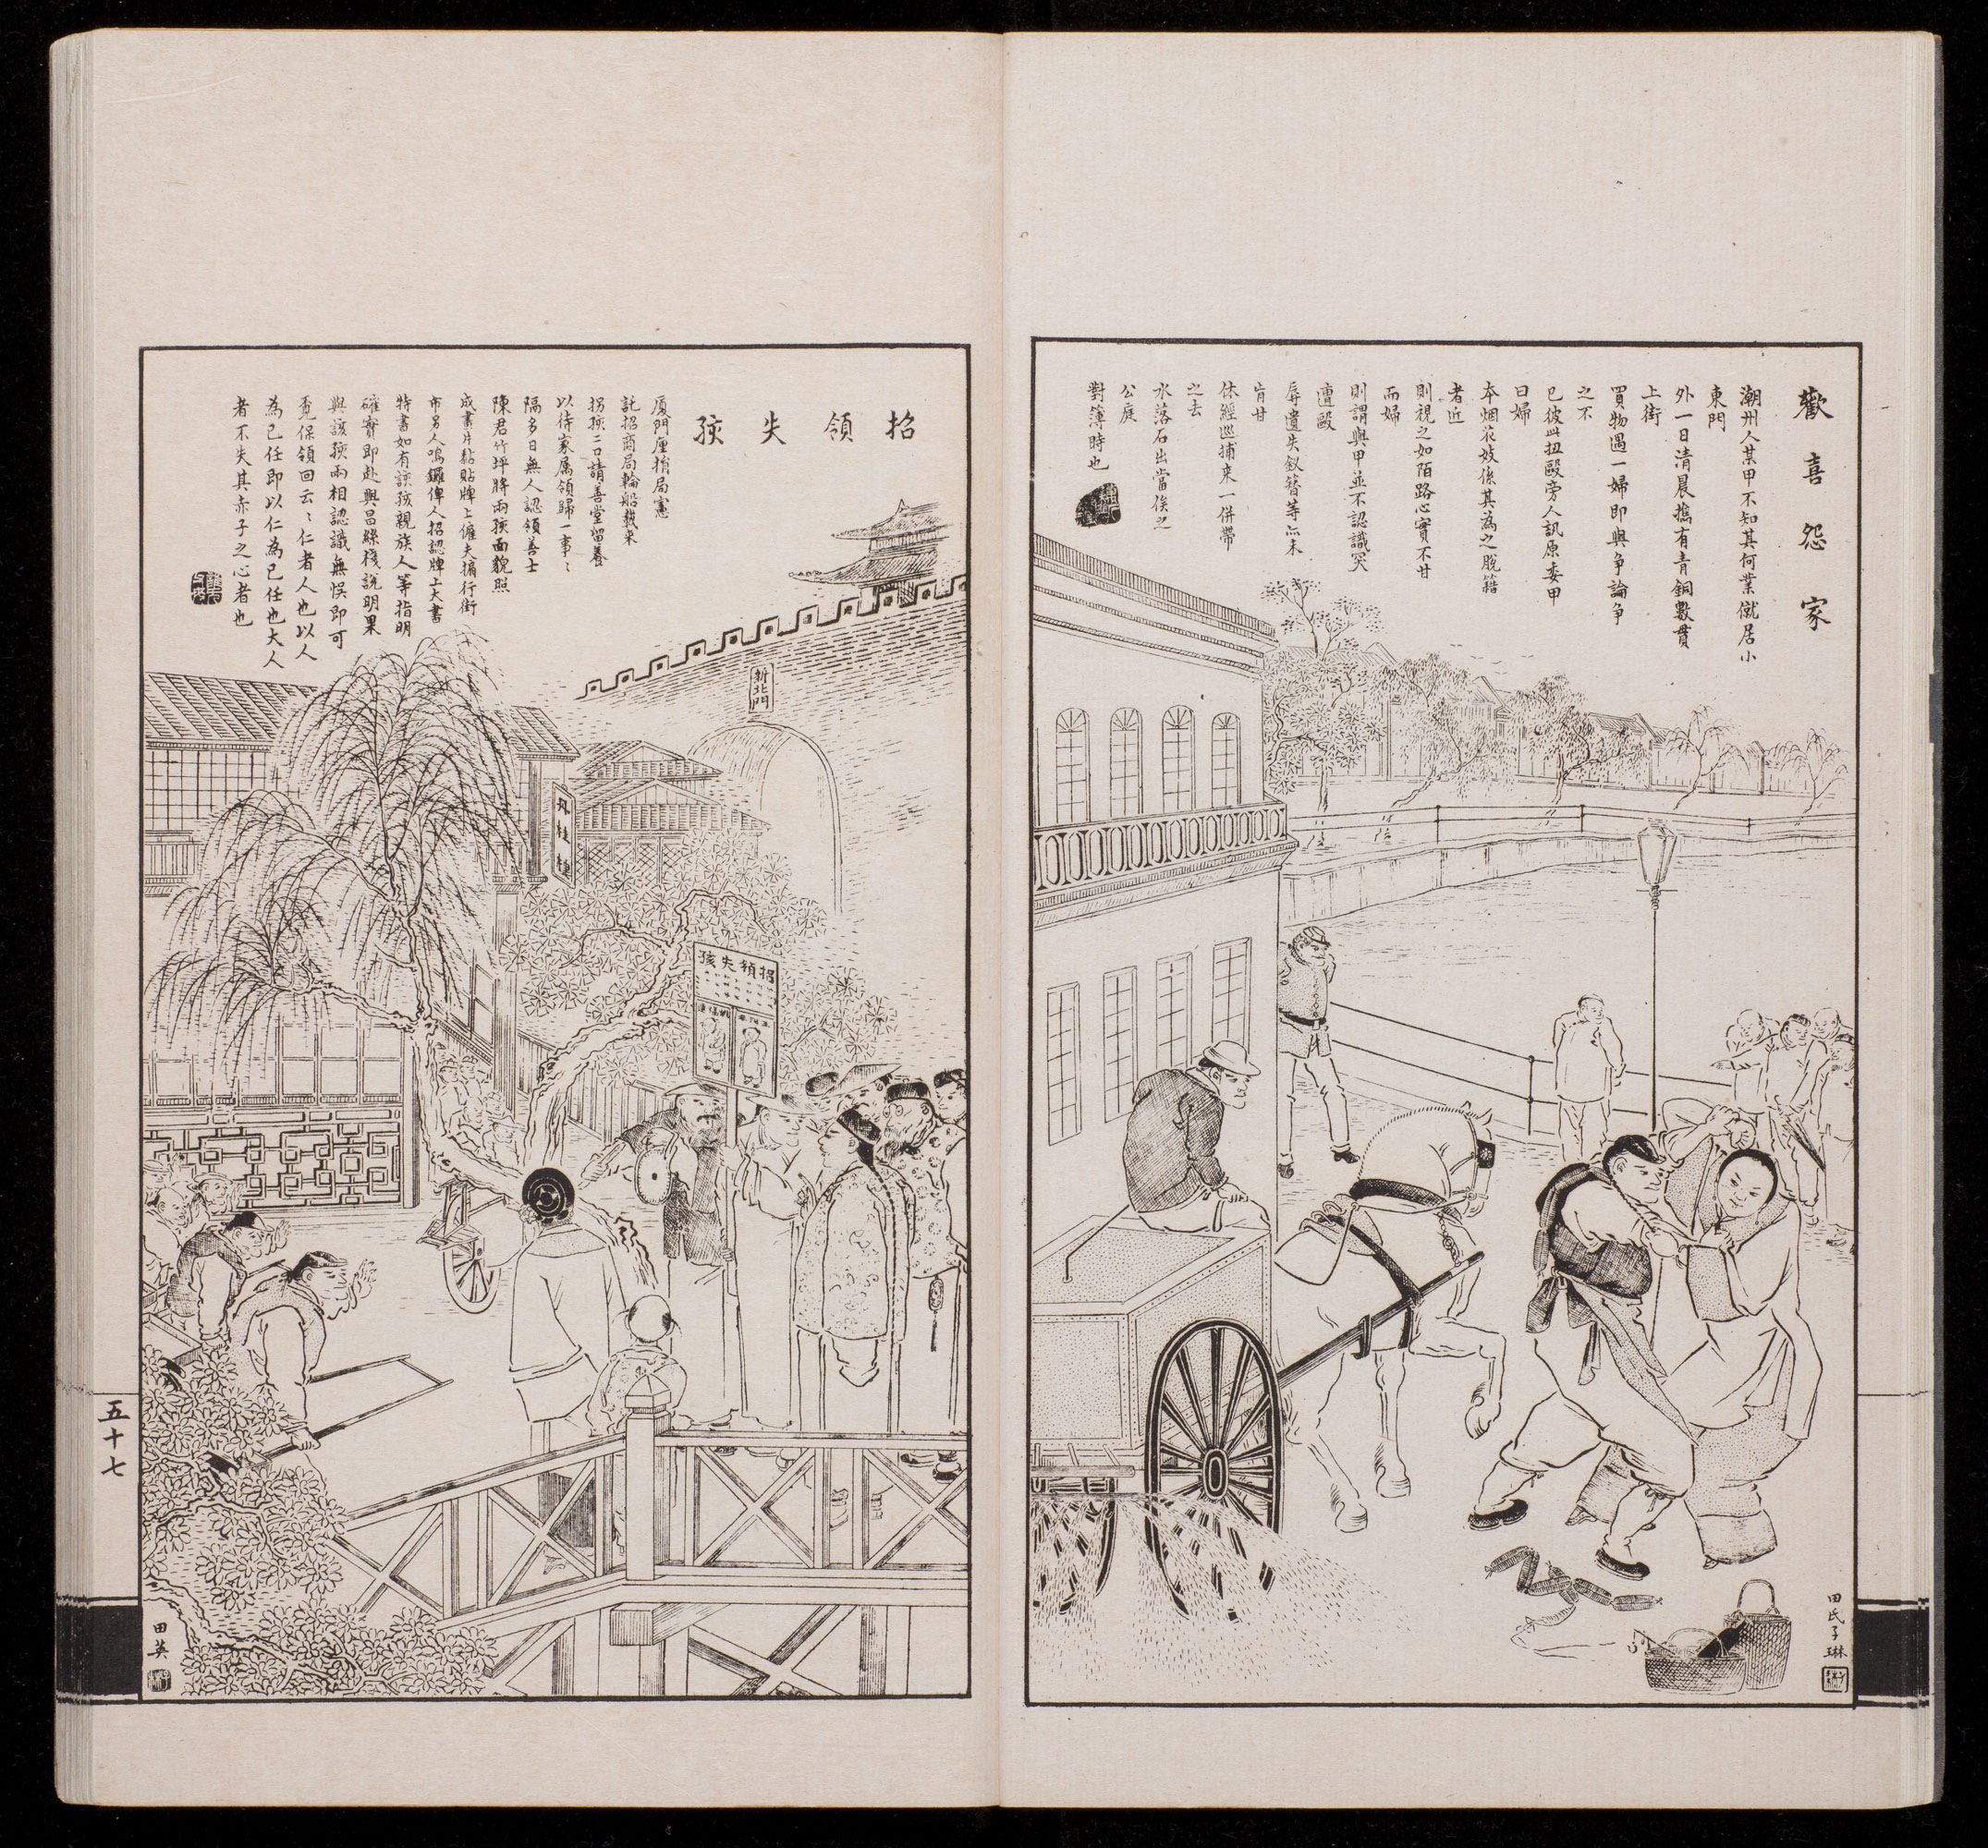 歡喜怨家
潮州人某甲不知其何業僦居小
東門
外一日清晨攜有青銅數貫
上街
買物遇一婦即與爭論爭
之不
已彼此扭毆旁人訊原委甲
曰婦
本烟花妓係其為之脫籍
者近
則視之如陌路心實不甘
而婦
則謂與甲並不認識突
遭毆
辱遺失釵簪等亦未
肯甘
休經巡捕來一併帶
之去
水落石出當俟之
公庭
對簿時也
田氏子琳
招領失孩
廈門厘捐局憲
託招商局輪船載來
拐孩二口請善堂留養
以待家屬領歸一事
隔多日無人認領善士
陳君竹坪將兩孩面貌照
成畫片黏貼牌上僱夫掮行街
市另人鳴鑼俾人招認牌上大書
特書如有該孩親族人等指明
確實即赴與昌絲棧說明果
與該孩兩相認識無悮即可
覓保領回云云仁者人也以人
為己任即以仁為己任也大人
者不失其赤子之心者也
新北門
丸桂
招領失孩
田英
五十七